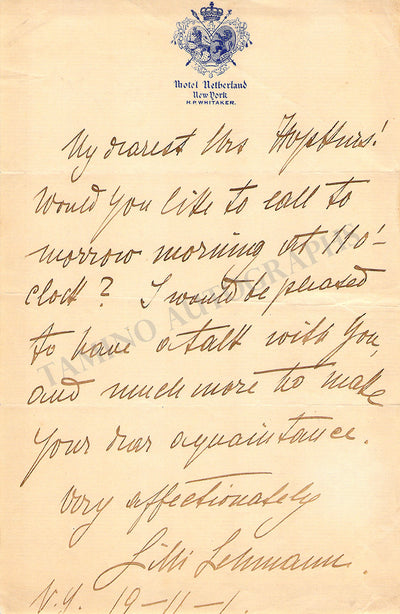 Hotel Netherland
New York
H.P. WHITAKER.
My dearest Mrs Hopkins!
Would you like to call to
morrow morning at 10 o'-
clock? I would be pleased
to have a talk with you,
and much more to make
your dear aquaintance.
very affectionately
Lilli Lehmann.
N.Y. 19-11-1.
TAMINO AUTOGRAPHS